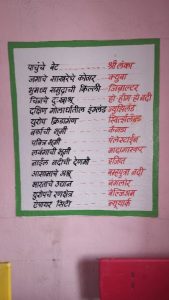 पाचूचे बेट श्रीलंका
जगाचे साखरेचे कोठार क्युबा
भूमध्य समुद्राची किल्ली जिब्राल्टर
चिनचे दुःखाश्रू हो हँग हो नदी
दक्षिण गोलार्धातील इंग्लंड न्युझिलंड
युरोप क्रिडांगण स्वित्झर्लंड
बर्फाची भूमी कॅनडा
पवित्र भूमी पॅलेस्टाईन
लवंगाची भूमी मादागास्कर
नाईल नदीची देणगी इजिप्त
आसामचे अश्रू ब्रम्हपुत्रा नदी
भारताचे उद्यान बंगलोर
युरोपचे रणक्षेत्र बेल्जिअम
टॉवर सिटी न्यूयार्क